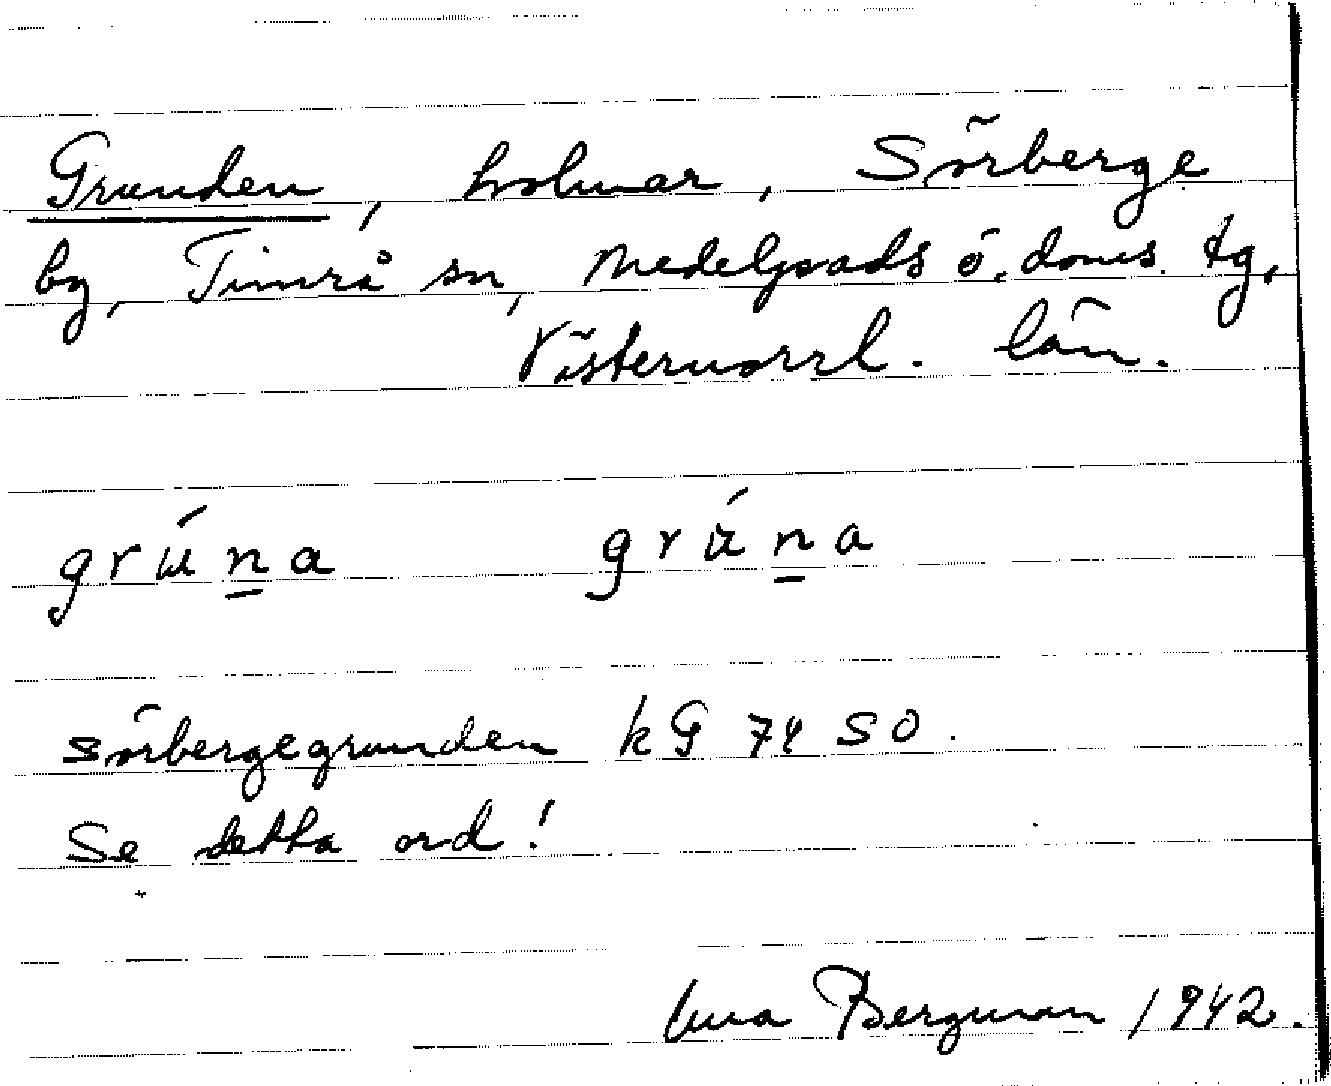 Grunden, holmar, Sörberge
by, Timrå sn, Medelpads ö. doms. tg,
Västernorrl. län.
grú̱na grú̱na
Sörbergegrunden kG 74 SO.
Se detta ord!
Bergman 1942.